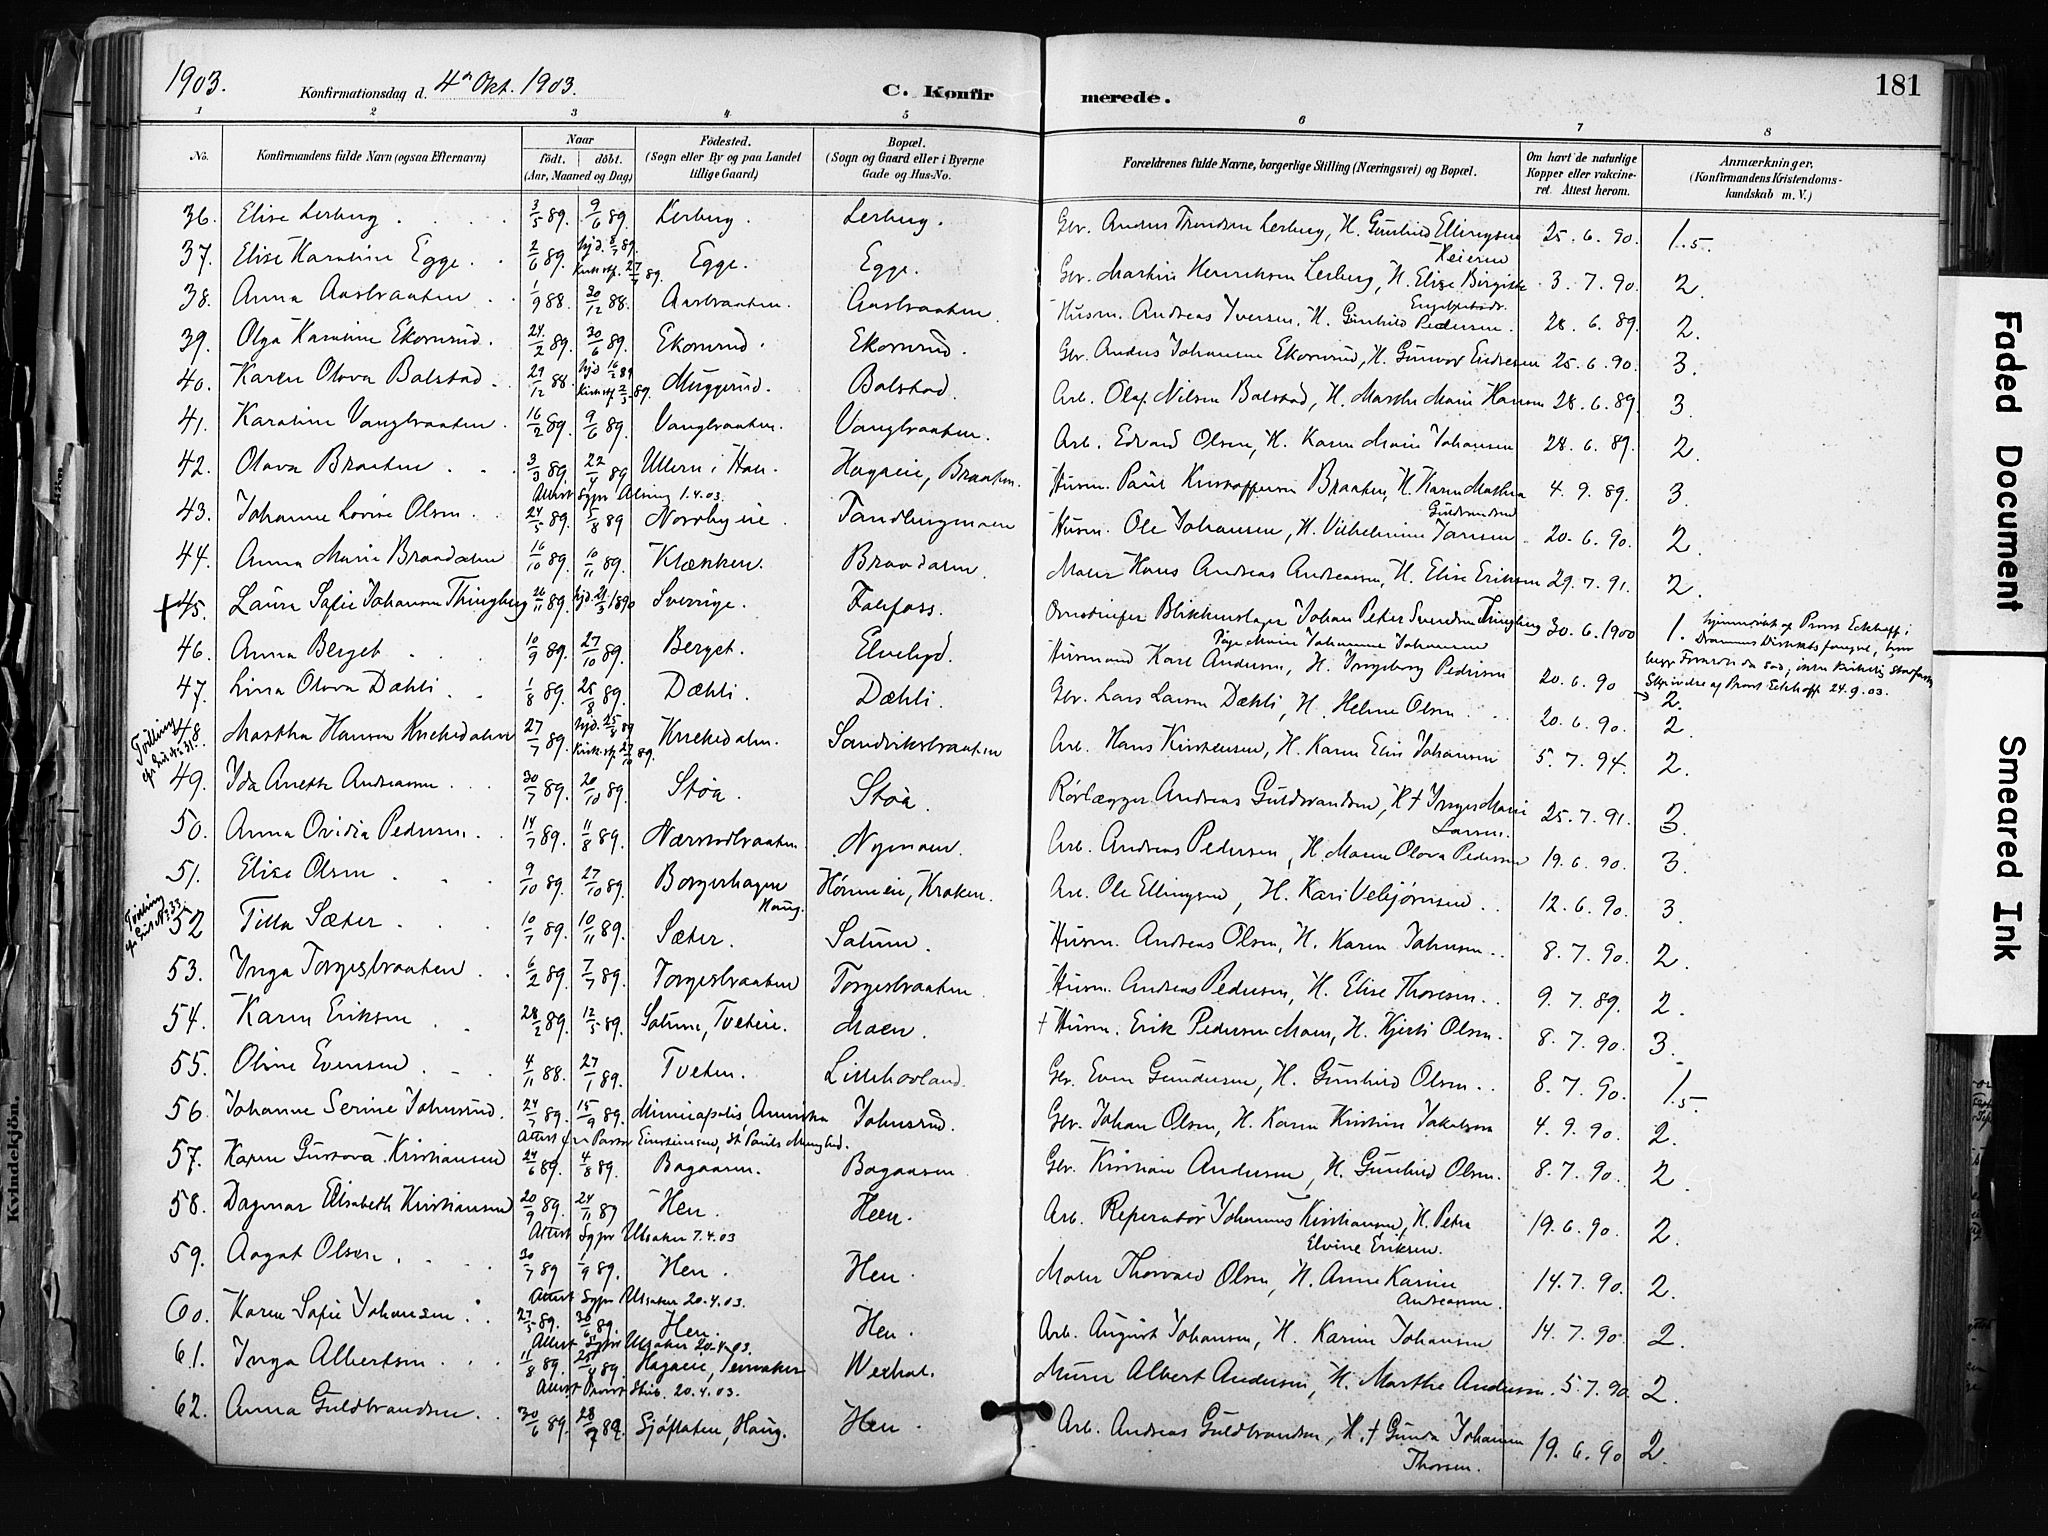 1903.
Konfirmationsdag d. 4de Okt. 1903.
C. Konfir
merede.
181
1 2 3 4 5 6 7 8
No.
Konfirmandens fulde Navn (ogsaa Efternavn)
Naar
födt. döbt.
(Aar, Maaned og Dag)
Födested.
(Sogn eller By og paa Landet
tillige Gaard)
Bopæl.
(Sogn og Gaard eller i Byerne
Gade og Hus-No.
Forældrenes fulde Navne, borgerlige Stilling (Næringsvei) og Bopæl.
Om havt de naturlige
Kopper eller vakcine-
ret. Attest herom.
Anmærkninger.
(Konfirmandens Kristendoms-
kundskab m. V.)
36. Elise Lerberg 3/5 89. 9/6 89. Lerberg. Lerberg. Gbr. Anders Trondsen Lerberg, H. Gunhild Ellingsen 25.6.90. 1.5.
37. Elise Karoline Egge 2/6 89. hjd. Kirk. 27/7 89. Egge. Egge. Gbr. Martin Henriksen Lerberg, H. Elise Birgitte 3.7.90. 2.
38. Anna Aasbraaten 1/9 88. 30/12 88. Aasbraaten. Aasbraaten. Husm. Andreas Iversen, H. Gunhild Pedersen. 28.6.89. 2.
39. Olga Karoline Ekornrud. 24/2 89. 30/6 89. Ekornrud. Ekornrud. Gbr. Anders Johansen Ekornrud, H. Gunvor Endresen 25.6.90. 3.
40. Karen Olava Bolstad. 29/12 88. hjd. 16/2 89 Muggerud. Bolstad. Arb. Olaf Nilsen Bolstad, H. Marthe Marie Hansen 28.6.89. 3.
41. Karoline Vangbraaten. 16/2 89. 9/6 89. Vangbraaten. Vangbraaten. Arb. Edvard Olsen, H. Karen Marie Johansen 28.6.89. 2.
42. Olava Braaten 3/3 89. 22/4 89 Ullern i Hole. Hagaeie, Braaten. Husm. Paul Kristoffersen Braaten, H. Karen Mathea Guldbrandsen 4.9.89. 3.
Attest Sgpr Alsing 1.4.03.
43. Johanne Lovise Olsen. 24/5 89. 5/8 89 Nordbyeie. Tandbergmoen Husm. Ole Johansen, H. Vilhelmine Jansen. 20.6.90. 2.
44. Anna Marie Braadalen 16/10 89. 10/11 89. Klækken. Braadalen. Maler Hans Andreas Andreasen, H. Elise Eriksen 29.7.91. 2.
45. Laura Sofie Johansen Thingberg 26/11 89. hjd. 1890 Sverige. Follfoss. Blikkenslager Johan Peter Svendsen Thingberg 30.6.1900 1.
Skrivelse af Provst Eckhoff 24.9.03.
46. Anna Berget 10/9 89. 27/10 89. Berget. Elvelyd. Husmand Karl Andersen, H. Ingeborg Pedersen 20.6.90 2.
47. Lina Olava Dæhli 1/8 89. 25/8 89. Dæhli. Dæhli. Gbr. Lars Larsen Dæhli, H. Helene Olsen. 20.6.90. 2.
Tvilling
48. Martha Hansen Knekedalen 27/7 89. hjd. Kirk. 27/10 89. Knekedalen. Sandviksbraaten Arb. Hans Kristensen, H. Karen Elin Johansen 5.7.94. 2.
49. Ida Anette Andreasen 30/7 89. 20/10 89. Støa. Støa. Rørlægger Andreas Guldbrandsen, H. † Inger Marie Larsen. 25.7.91. 3.
50. Anna Ovidia Pedersen. 14/7 89. 11/8 89. Næssetbraaten. Nymoen. Arb. Andreas Pedersen, H. Maren Olava Pedersen 19.6.90. 3.
51. Elise Olsen 9/10 89. 27/10 89. Borgerhagen Haug. Hønneeie, Kroken. Arb. Ole Ellingsen, H. Kari Vebjørnsen 12.6.90. 3.
Tvilling
52 Tilla Sæter 10/7 89. 10/11 89. Sæter. Solum. Husm. Andreas Olsen, H. Karen Johnsen. 8.7.90. 2.
53. Inga Torgesbraaten 6/2 89. 7/7 89. Torgesbraaten Torgesbraaten. Husm. Andreas Pedersen, H. Elise Thoresen. 9.7.89. 2.
54. Karen Eriksen 28/2 89. 12/5 89. Solum, Tveteie. Moen. † Husm. Erik Pedersen Moen, H. Kjersti Olsen. 8.7.90. 3.
55. Oline Evensen 4/11 88. 27/1 89. Tveten. Lillehovland. Gbr. Even Gundersen, H. Gunhild Olsen. 8.7.90. 1.5.
56. Johanne Serine Johnsrud. 24/7 89. 15/9 89. Minneapolis, Amerika Johnsrud. Gbr. Johan Olsen, H. Karen Kristine Jakobsen 4.9.90. 2.
57. Karen Gustava Kristiansen 24/6 89. 4/8 89. Bagaasen. Bagaasen. Gbr. Kristian Andersen, H. Gunhild Olsen. 8.7.90. 2.
58. Dagmar Elisabeth Kristiansen 20/9 89. 24/11 89 Hen. Heen. Arb. Reperatør Johannes Kristiansen, H. Petra Elvine Eriksen. 19.6.90. 2.
Attest Sgpr Ulsaker 7.4.03
59. Aagot Olsen 30/7 89 1/9 89. Hen. Hen. Maler Thorvald Olsen, H. Anne Karine Andreasen. 14.7.90. 2.
Attest Sgpr Ulsaker 20.4.03.
60. Karen Sofie Johansen 27/5 89. 30/6 89. Hen. Hen. Arb. August Johansen, H. Karine Johansen 14.7.90. 2.
Attest Sgpr Ulsaker 20.4.03.
61. Inga Albertsen 11/8 89. 89. Hagaeie, Vexhal. Murer Albert Andersen, H. Marthe Andersen. 5.7.90 2.
Attest Provst 20.4.03.
62. Anna Guldbrandsen 30/6 89. 28/7 89. Sjøflaten, Haug. Hen. Arb. Andreas Guldbrandsen, H. † Gunda Johanne Thorsen. 19.6.90 2.
Kvindekjön.
Faded Document
Smeared Ink